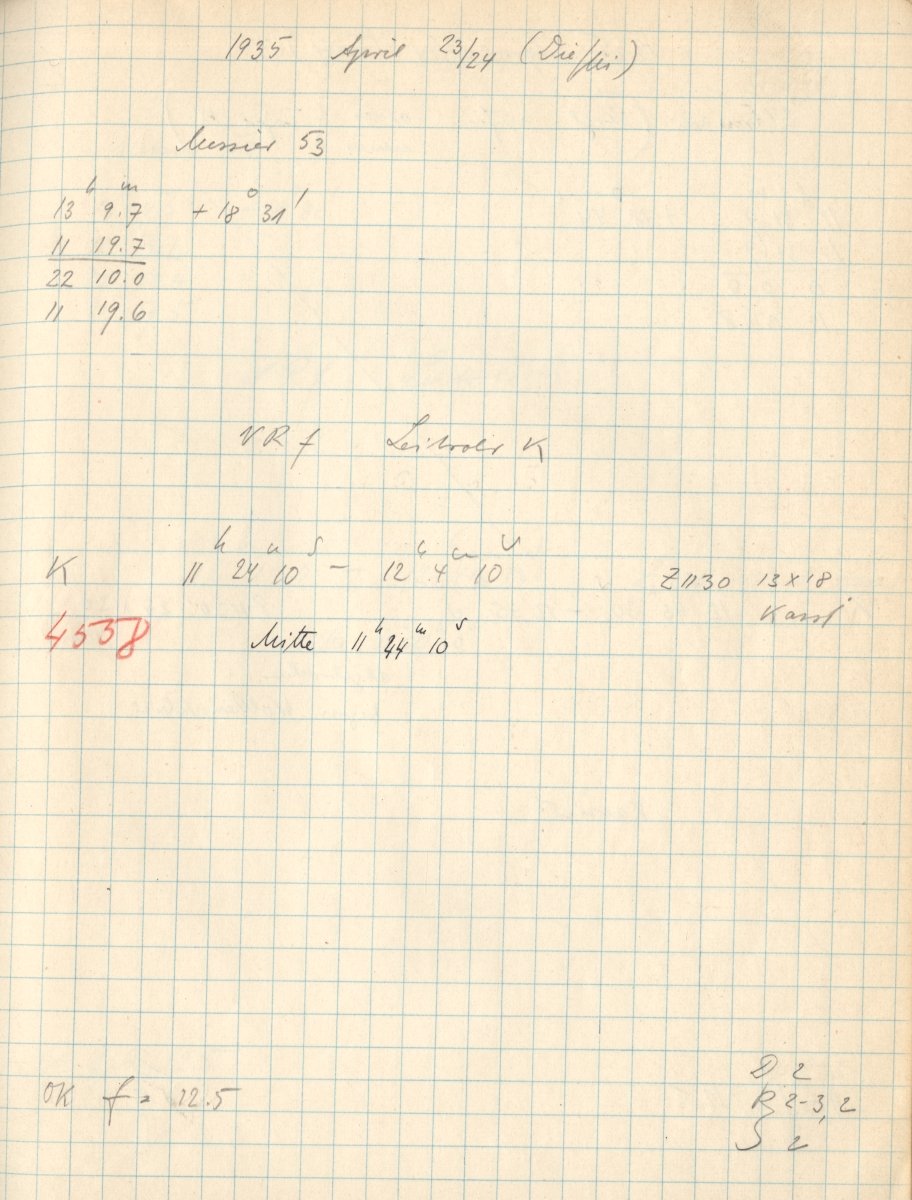 1935 April 23/24 (Die/Mi)
Messier 53
13h 9.7m +18° 31'
11 19.7
22 10.0
11 19.6
VR f Leitrohr K
K 11h 24m 10s - 12h 4m 10s Z1130 13x18
4558 Mitte 11h 44m 10s
OK f = 12.5
D 2
R 2-3, 2
S 2